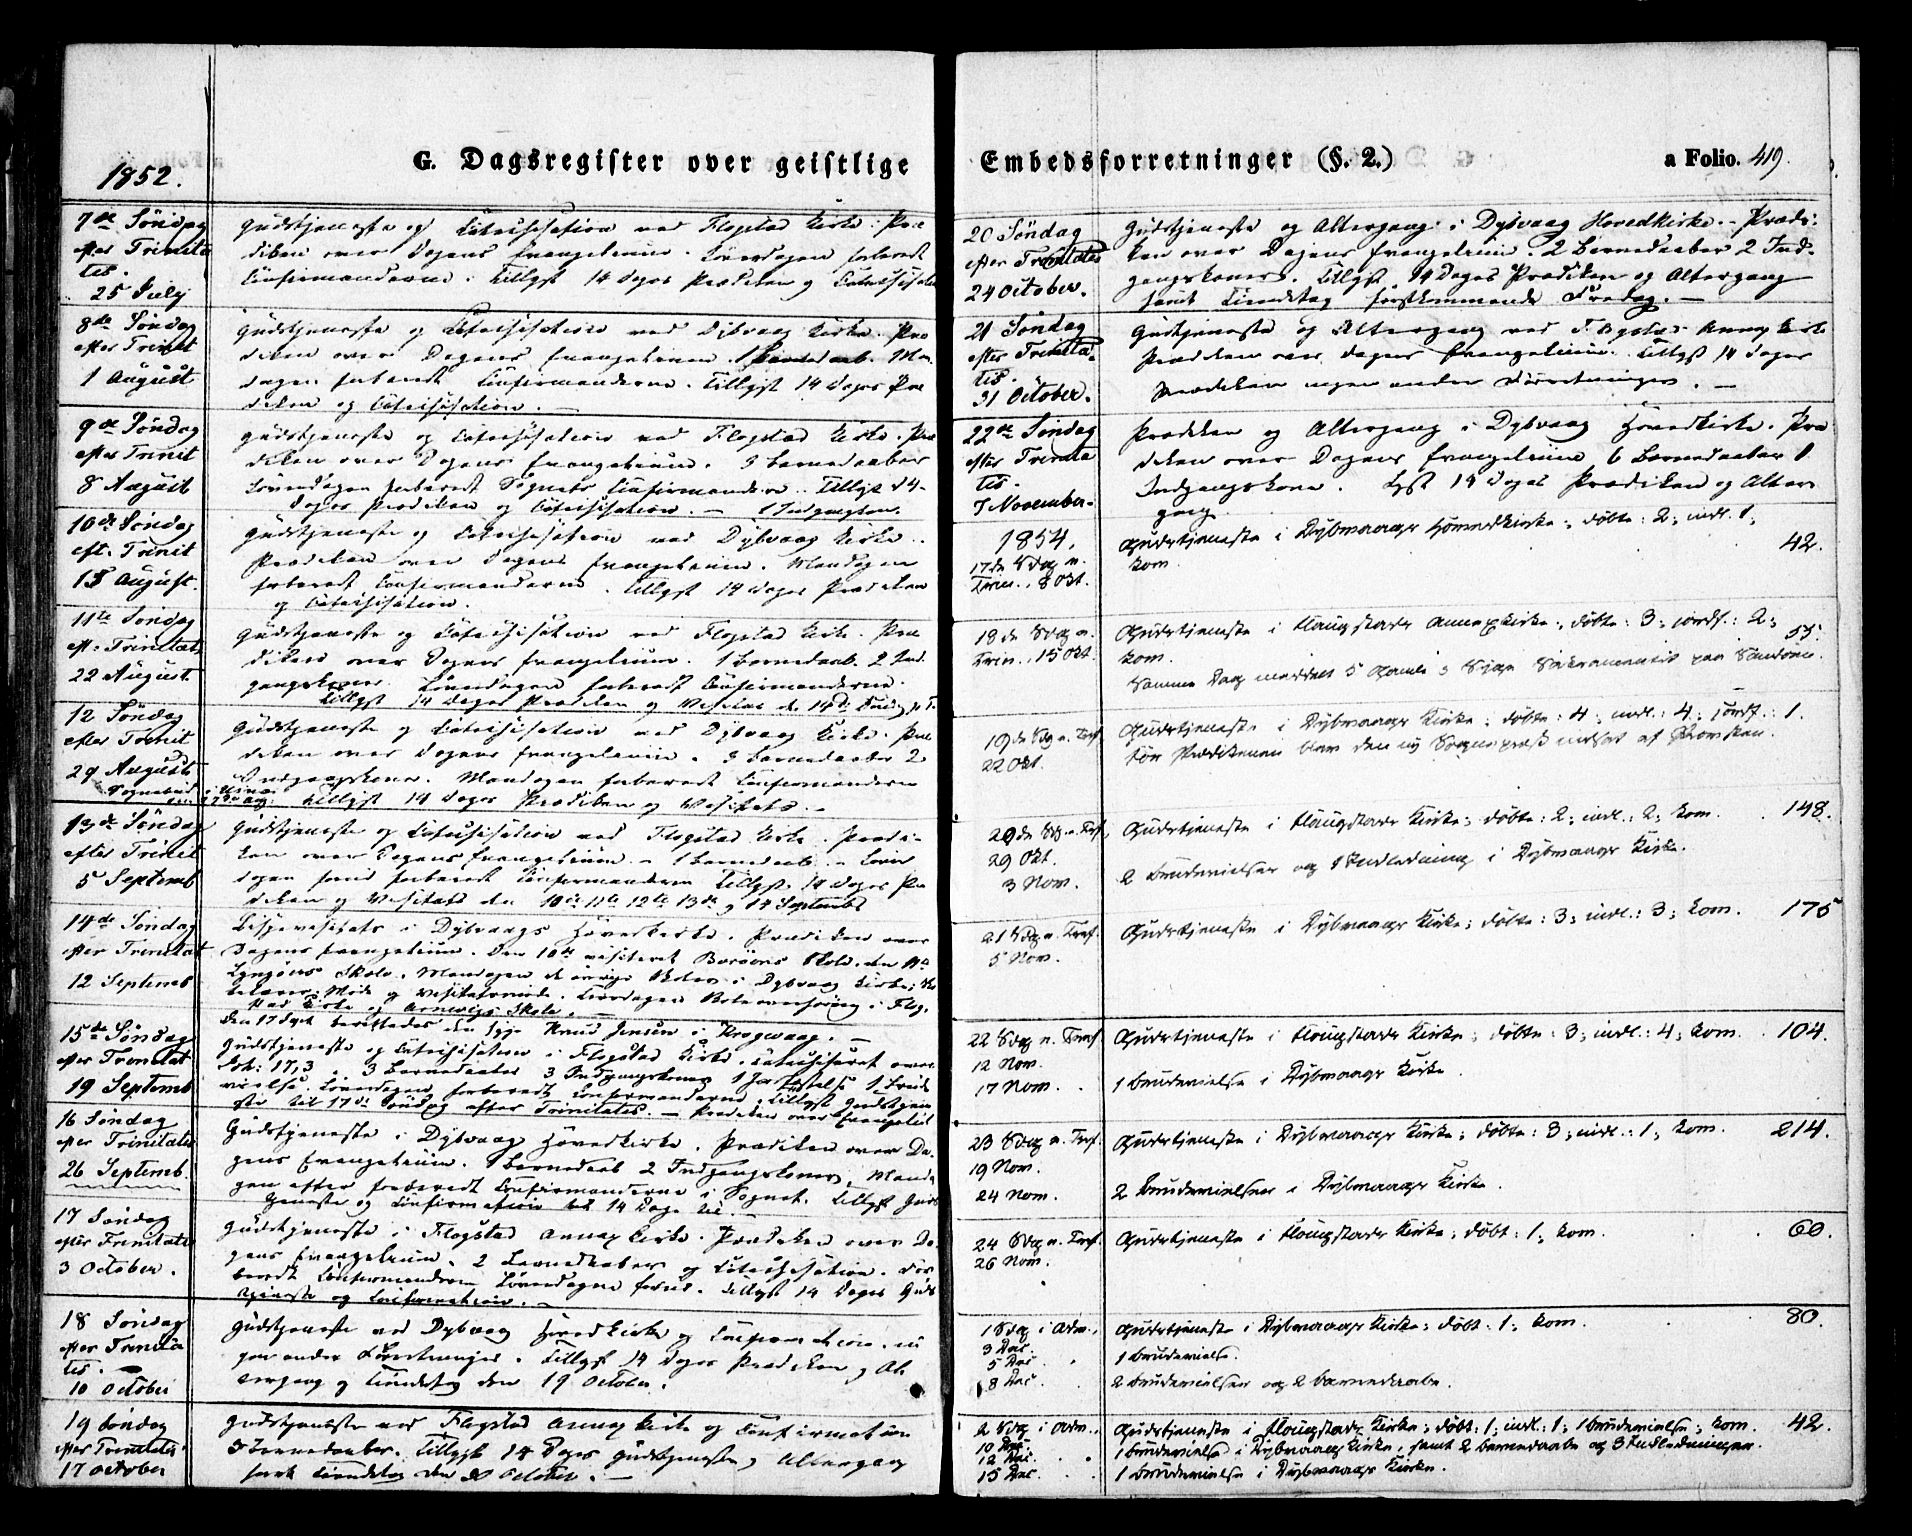 G. Dagsregister over geistlige
1852.
7de Søndag
efter Trinita
tis.
25 July
Gudstjeneste og Catechisation ved Flogstad Kirke. Præ
diken over Dagens Evangelium. Løverdagen forberedt
Confirmanderne. Tillyst 14 Dages Prædiken og Catechisation
8de Søndag
efter Trinit
1 August
Gudstjeneste og Catechisation ved Dybvaag Kirke. Præ
diken over Dagens Evangelium. 1 Barnedaab. Man
dagen forberedt Confirmanderne. Tillyst 14 Dages Præ
diken og Catechisation. —
9de Søndag
efter Trinit
8 August
Gudstjeneste og Catechisation ved Flogstad Kirke. Præ
diken over Dagens Evangelium. 3 Barnedaaber
Løverdagen forberedt Sognets Confirmander. Tillyst 14
Dages Prædiken og Catechisation. — 1 Indgangskone.
10de Søndag
eft. Trinit
15 August.
Gudstjeneste og Catechisation ved Dybvaag Kirke.
Prædiken over Dagens Evangelium. Mandagen
forberedt Confirmanderne. Tillyst 14 Dages Prædiken
og Catechisation.
11te Søndag
eft. Trinitat.
22 August.
Gudstjeneste og Catechisation ved Flogstad Kirke. Præ
diken over Dagens Evangelium. 1 Barnedaab. 2 Ind
gangskoner. Løverdagen forberedt Confirmanderne.
Tillyst 14 Dages Prædiken og Visitats d. 14de
12 Søndag
efter Trinit
29 August
Gudstjeneste og Catechisation ved Dybvaag Kirke. Præ
diken over Dagens Evangelium. 3 Barnedaaber 2
Indgangskoner. Mandagen forberedt Confirmanderne
Tillyst 14 Dages Prædiken og Visitats. —
13de Søndag
efter Trinit
5 Septemb
Gudstjeneste og Catechisation ved Flogstad Kirke. Prædi-
ken over Dagens Evangelium. — 1 Barnedaab. — Løver
dagen forud forberedt Confirmanderne Tillyst 14 Dages Præ
diken og Visitats den 10de 11te 12te 13de og 14 Septembr
14de Søndag
efter Trinitat
12 Septemb
Bispevisitats i Dybvaags Hovedkirke. Prædiken over
Dagens Evangelium. Den 10de visiteret Borøens Skole. den
Lyngørs Skole. Mandagen de øvrige Skoler i Dybvaag Kirke;
Møde og Visitatsmøde. i Flog
stad Kirke og Arnevigs Skole. —
15de Søndag
efter Trinitat
19 Septemb
Den 17 Sept. berettedes den syge Knud Jensen i Krogvaag. —
Gudstjeneste og Catechisation i Flogstad Kirke. Catechiseret over
Joh: 17,3. 3 Barnedaaber 3 Indgangskoner 1 Jordfæstelse 1 Brude
vielse. Løverdagen forberedt Confirmanderne. Tillyst Gudstjene
ste til 17de Søndag efter Trinitatis. — Prædiken over Evangeliet
16 Søndag
efter Trinitatis
26 Septemb.
Gudstjeneste i Dybvaag Hovedkirke. Prædiken over Da
gens Evangelium. 1 Barnedaab 2 Indgangskoner. Manda
gen efter forberedt Confirmanderne i Sognet. Tillyst Guds
tjeneste og Confirmation 14 Dage til. —
17 Søndag
efter Trinitatis
3 October.
Gudstjeneste i Flogstad Annexkirke. Prædiken over Da
gens Evangelium. 2 Barnedaaber og Catechisation. For
beredt Confirmanderne Løverdagen forud. Tillyst 14 Dages Guds
tjeneste og Confirmation. —
18 Søndag
efter Trinita
tis.
10 October
Gudstjeneste ved Dybvaag Hovedkirke og Confirmation. in
gen andre Forretninger. Tillyst 14 Dages Prædiken og Al
tergang og den 19 October.
19 Søndag
efter Trinitatis
17 October
Gudstjeneste ved Flogstad Annexkirke og Confirmation
3 Barnedaaber. Tillyst 14 Dages Gudstjeneste og Altergang
samt den October. —
Embedsforretninger (§. 2.)
a Folio. 419.
20 Søndag
efter Trinitatis
24 October.
Gudstjeneste og Altergang i Dybvaag Hovedkirke. Prædi-
ken over Dagens Evangelium. 2 Barnedaaber 2 Ind-
gangskoner. Tillyst 14 Dages Prædiken og Altergang
samt førstkommende Fredag. —
21 Søndag
efter Trinita-
tis.
31 October.
Gudstjeneste og Altergang ved Flogstad Annexkirke
Prædiken over Dagens Evangelium. Tillyst 14 Dages
Prædiken ingen andre Forretninger. —
22de Søndag
efter Trinita
tis.
7 November.
Prædiken og Altergang i Dybvaag Hovedkirke. Præ
diken over Dagens Evangelium 6 Barnedaaber 1
Indgangskone. Lyst 14 Dages Prædiken og Alter-
gang
1854.
17de Sdag n.
Trin., 8 Okt.
Gudstjeneste i Dybvaags Hovedkirke; døbte: 2; indl. 1;
kom. 42.
18de Sdag n.
Trin., 15 Okt.
Gudstjeneste i Flaugstads Annexkirke; døbte: 3; jordf.: 2;
kom. 55.
Samme Dag meddelt 5 Gamle og Syge Sakramentet paa Sandøen.
19de Sdg n. Tref.
22 Okt.
Gudstjeneste i Dybvaags Kirke; døbte: 4; indl.: 4; jordf.: 1.
Før Prædikenen blev den ny Sognepræst indsat af Provsten.
20de Sdg n. Tref.
29 Okt.
3 Nov.
Gudstjeneste i Flaugstads Kirke; døbte: 2; indl.: 2; kom. 148.
2 Brudevielser og 1 Indledning i Dybvaags Kirke.
21 Sdg n. Tref.
5 Nov.
Gudstjeneste i Dybvaags Kirke; døbte: 3; indl.: 3; kom. 175
22 Sdag n. Tref.
12 Nov.
17 Nov.
Gudstjeneste i Flaugstads Kirke; døbte: 3; indl.: 4; kom. 104.
1 Brudevielse i Dybvaags Kirke.
23 Sdag n. Tref.
19 Nov.
24 Nov.
Gudstjeneste i Dybvaags Kirke; døbte: 3; indl.: 1; kom. 214.
2 Brudevielser i Dybvaags Kirke.
24 Sdag n. Tref.
26 Nov.
Gudstjeneste i Flaugstads Kirke; døbt: 1; kom. 60.
1 Sdag i Adv.,
3 Dec.
5 Dec.
8 Dec.
Gudstjeneste i Dybvaags Kirke; døbt: 1; kom. 80.
1 Brudevielse.
2 Brudevielser og 2 Barnedaabe.
2 Sdag i Adv.,
10 Dec.
12 Dec.
15 Dec.
Gudstjeneste i Flaugstads Kirke; døbt: 1; indl.: 1; 1 Brudevielse; kom. 42.
1 Brudevielse i Dybvaags Kirke, samt 2 Barnedaabe og 3 Indledninger.
1 Brudevielse i Dybvaags Kirke.